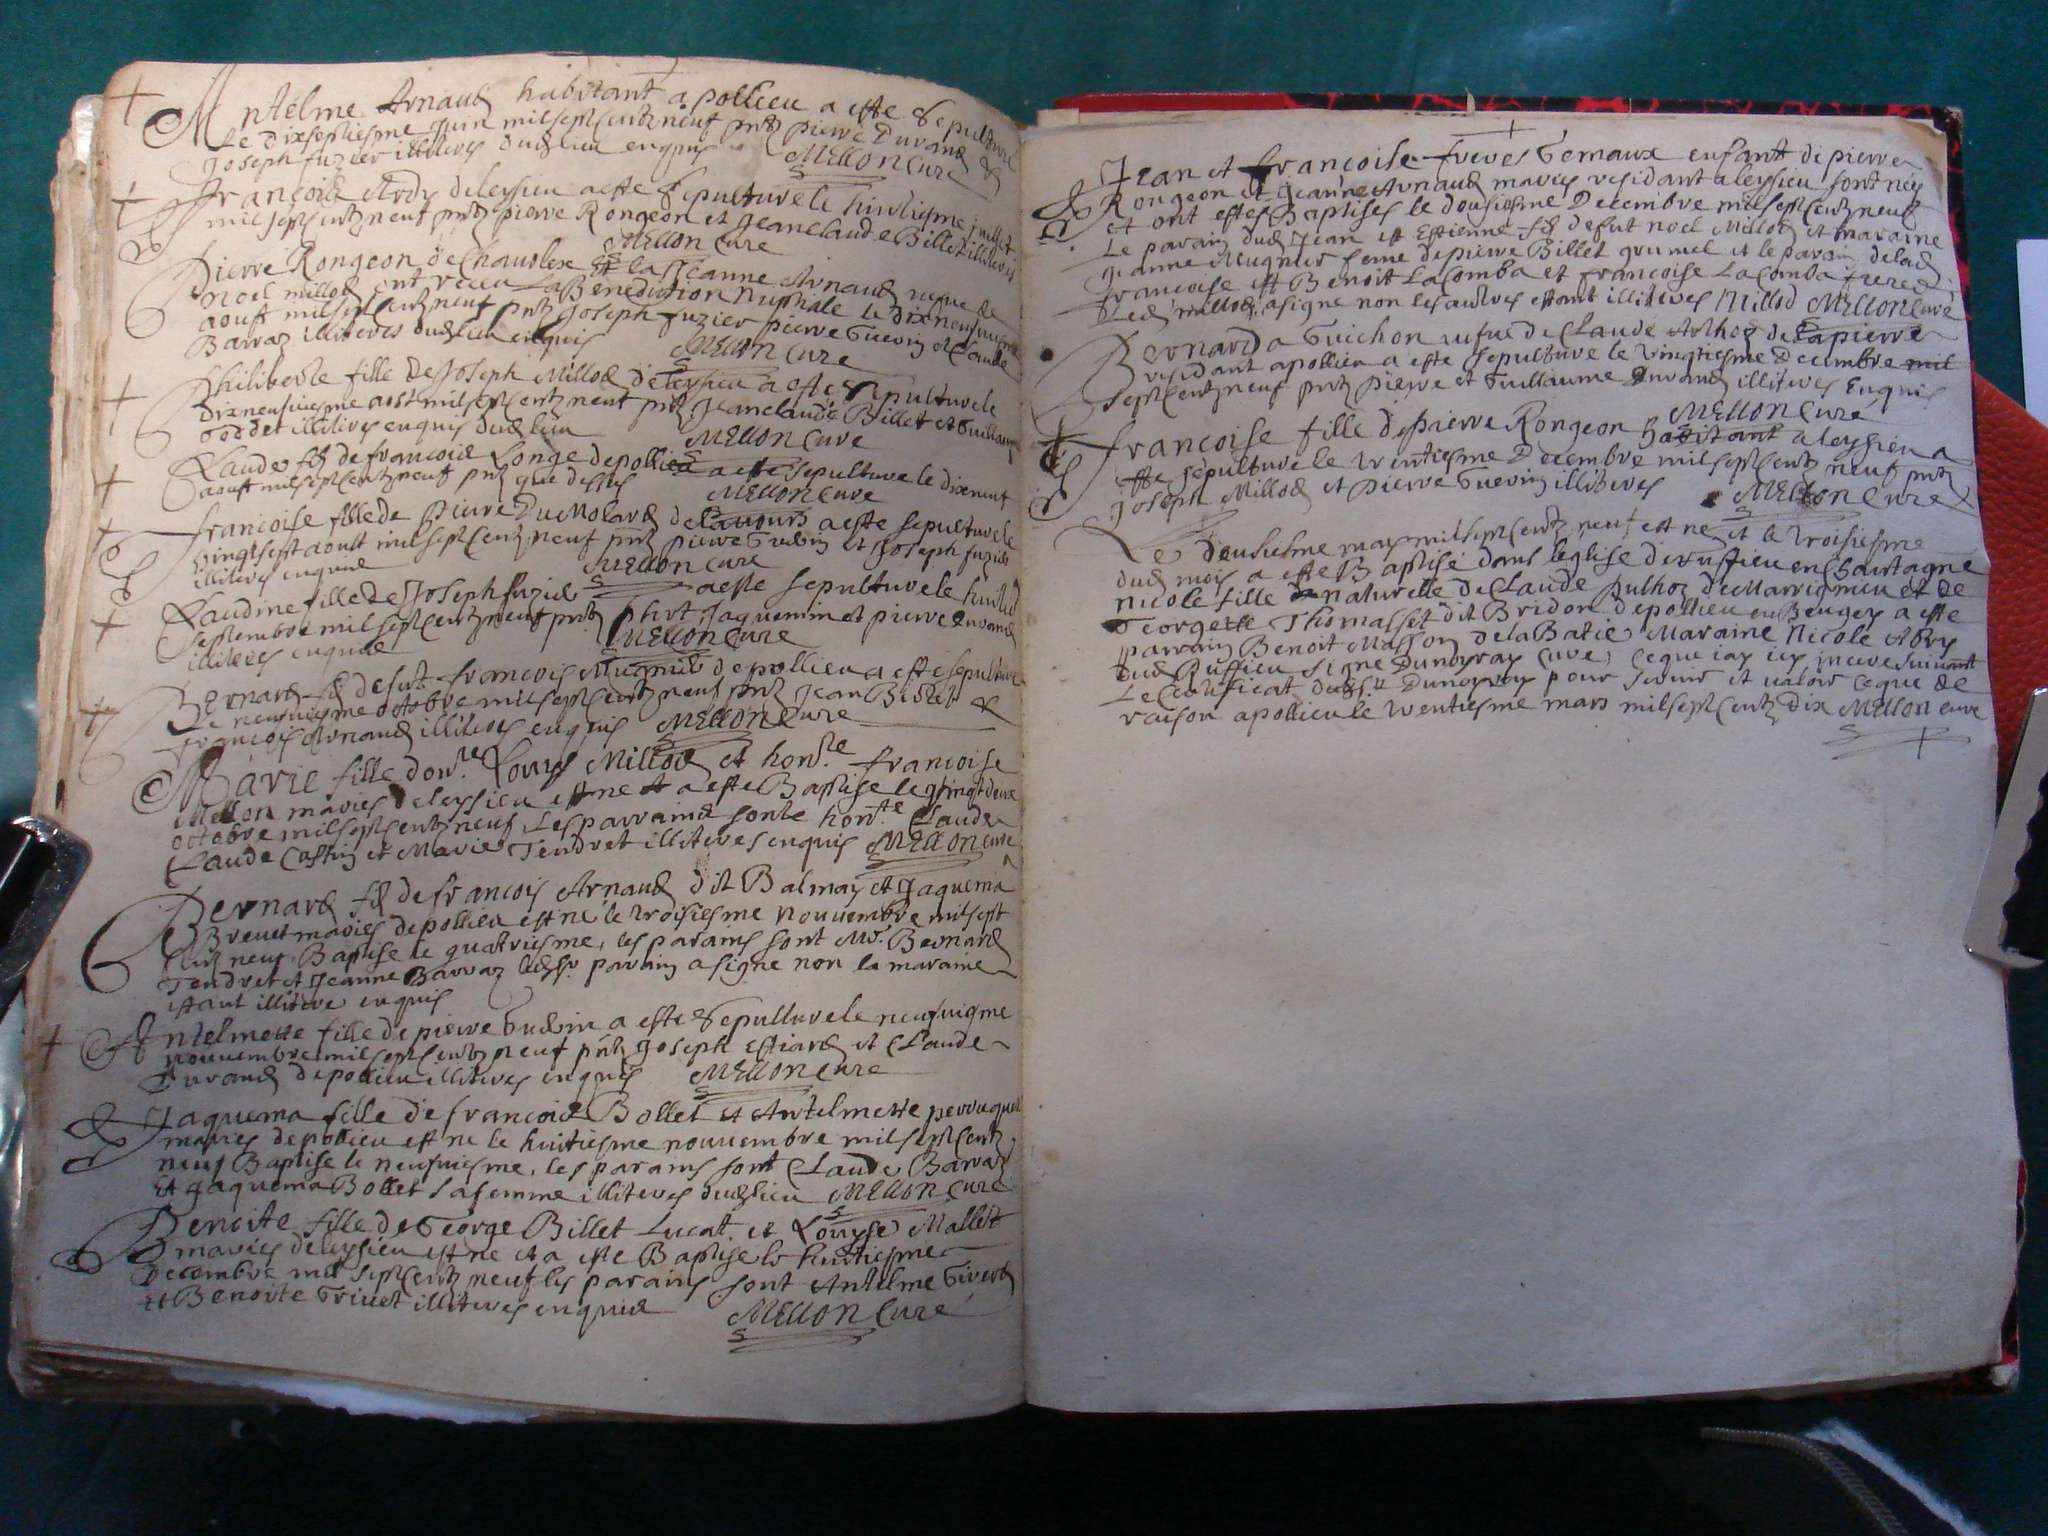 Antelme Arnaud habitant a pollieu a este Sepulture
Le dixseptiesme Juin mil sept centz neuf pntz pierre Durand &
Joseph fuzier illiteres dud lieu enquis MELLON Cure
françois Ardy de leysieu a este Sepulture le huictiesme juillet
mil sept centz neuf pntz pierre Rongeon et Jean claude Billet illiteres
MELLON Cure
Pierre Rongeon de Chanolex et la Jeanne Arnaud vefue de
noel millod ont receu La Benediction Nuptiale le dixneufuiesme
aoust mil sept centz neuf pntz Joseph fuzier pierre Guerin et Claude
Barraz illiteres dud lieu enquis MELLON Cure
Philiberte fille de Joseph Millod de leysieu a este Sepulture le
dixneufuiesme aost mil sept centz neuf pntz Jean claude Billet et Guillaume
Goddet illiteres enquis dud lieu MELLON Cure
Claude fz de françois Longe de pollieu a este sepulture le dixneuf
aoust mil sept centz neuf pntz que dessus MELLON Cure
françoise fille de pierre Du Molard de Lauours a este sepulture le
vingt sept aoust mil sept centz neuf pntz pierre Guerin et Joseph fuzier
illiteres enquis MELLON Cure
Claudine fille de Joseph fuzier a este sepulture le huict
septembre mil sept centz neuf pntz Jaquemin et pierre Durand
illiteres enquis MELLON Cure
Bernard fz de fut francois Mugnier de pollieu a este sepulture
Le neufuiesme octobre mil sept centz neuf pntz Jean Billet &
françois Arnaud illiteres enquis MELLON Cure
Marie fille d'on.le Louys Millod et hon.le françoise
Mellon maries de leysieu est ne et a este Baptise le vingt deux
octobre mil sept centz neuf, les parrains sont hon.te Claude
Claude Castin et Marie Tendret illiteres enquis MELLON Cure
Bernard fz de françois Arnaud dit Balmay et Jaquema
Breuet maries de pollieu est ne le troisiesme nouuembre mil sept
centz neuf Baptise le quatriesme, les parains sont Mr. Bernard
Tendret et Jeanne Barraz led sr parrain a signe non la maraine
estant illitere enquis
Antelmette fille de pierre Guerin a este Sepulture le neufuiesme
nouuembre mil sept centz neuf pntz Joseph Effiard et Claude
Durand de pollieu illiteres enquis MELLON Cure
Jaquema fille de françois Bollet et Antelmette perruquet
maries de pollieu est ne le huitiesme nouuembre mil sept centz
neuf Baptise le neufuiesme, les parains sont Claude Barraz
Et Jaquema Bollet sa femme illiteres dud lieu MELLON Cure
Benoite fille de George Billet Lucat et Louyse Mallet
maries de leysieu est ne et a este Baptise le huitiesme
Decembre mil sept centz neuf les parains sont Antelme Girerd
et Benoite Triuet illiteres enquis MELLON Cure
Jean et françoise freres Gemaux enfantz de pierre
Rongeon et Jeanne Arnaud maries residant a leysieu sont nes
et ont estes Baptises le dousiesme Decembre mil sept centz neuf
Le parain dud Jean est Estienne fz de fut noel Millod et maraine
Jeanne Mugnier feme de pierre Billet grumel et le parain de lad
francoise est Benoit La Comba et francoise La Comba freres
Led millod a signe non les autres estant illiteres Millod MELLON Cure
Bernarda Guichon vefue de Claude Anthoz de Lapierre
residant a pollieu a este Sepulture le vingtiesme Decembre mil
sept centz neuf pntz pierre et Guillaume Durand illiteres Enquis
MELLON Cure
francoise fille de pierre Rongeon habitant a leysieu a
este sepulture le trentiesme Decembre mil sept centz neuf pntz
Joseph Millod et pierre Guerin illiteres MELLON Cure
Le deusiesme may mil sept centz neuf est ne et le troisiesme
dud mois a este Baptise dans leglise de ruffieu en Chautagne
Nicole fille naturelle de Claude Puthoz de Marrignieu et de
Georgette Thomasset dit Bridon de pollieu en Beugey a este
parrain Benoit Masson de la Batie Maraine Nicole Abry
dud Ruffieu signe Dunoyray Cure, ce que iay icy incere suiuant
Le Certificat dud Sr Dunoyray pour seruir et ualoir ce que de
raison a pollieu le trentiesme mars mil sept centz dix MELLON Cure